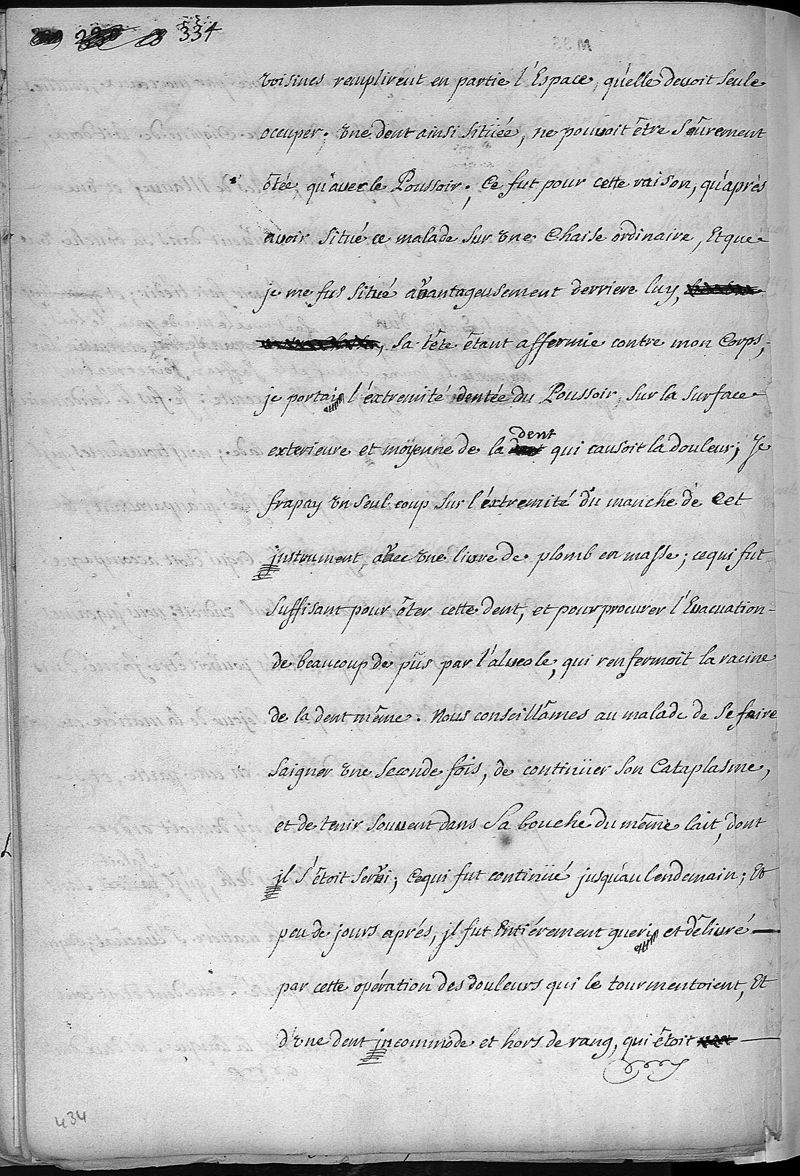 334
voisines remplirent en partie l'Espace, qu'elle devoit seule
occuper; une dent ainsi située, ne pouvoit être sûrement
ôtée, qu'avec le Poussoir; Ce fut pour cette raison, qu'après
avoir situé ce malade sur une Chaise ordinaire, Et que
je me fus situé avantageusement derriere luy,
, Sa tête étant affermie contre mon Corps,
je portais l'éxtremité dentée du Poussoir, sur la surface
dent
exterieure et möyenne de la qui causoit la douleur; Je
frapay un seul coup sur l'éxtremité du manche de Cet
jnstrument, avec une livre de plomb en masse; ce qui fut
suffisant pour ôter cette dent, et pour procurer l'Evacuation
de beaucoup de pûs par l'alveole, qui renfermoit la racine
de la dent même. Nous conseillâmes au malade de se faire
saigner une seconde fois, de continüer son Cataplasme,
et de tenir souvent dans sa bouche du même lait, dont
jl s'étoit servi; ce qui fut continüé jusqu'au lendemain; Et
peu de jours aprés, jl fut Entiérement gueri, et délivré
par cette opération des douleurs qui le tourmentoient, Et
d'une dent jncommode et hors de rang, qui étoit
434